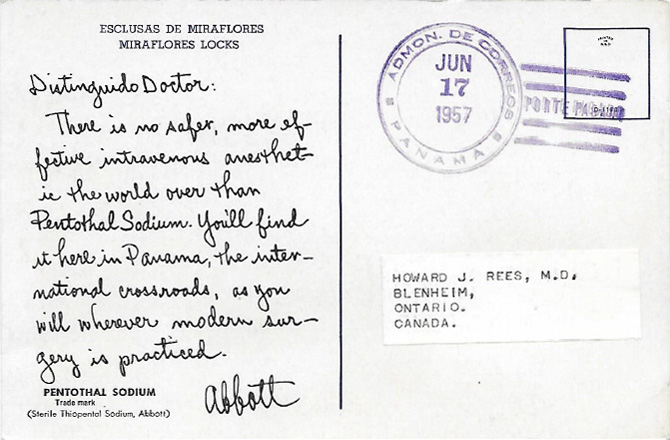 ESCLUSAS DE MIRAFLORES
MIRAFLORES LOCKS
Distinguido Doctor:
There is no safer, more ef-
fective intravenous anesthet-
ic the world over than
Pentothal Sodium. You'll find
it here in Panama, the inter-
national crossroads, as you
will wherever modern sur-
gery is practiced.
Abbott
PENTOTHAL SODIUM
Trade mark
(Sterile Thiopental Sodium, Abbott)
ADMON. DE CORREOS
PANAMA
JUN
17
1957
PORTE PAGADO
HOWARD J. REES, M.D.
BLENHEIM,
ONTARIO.
CANADA.